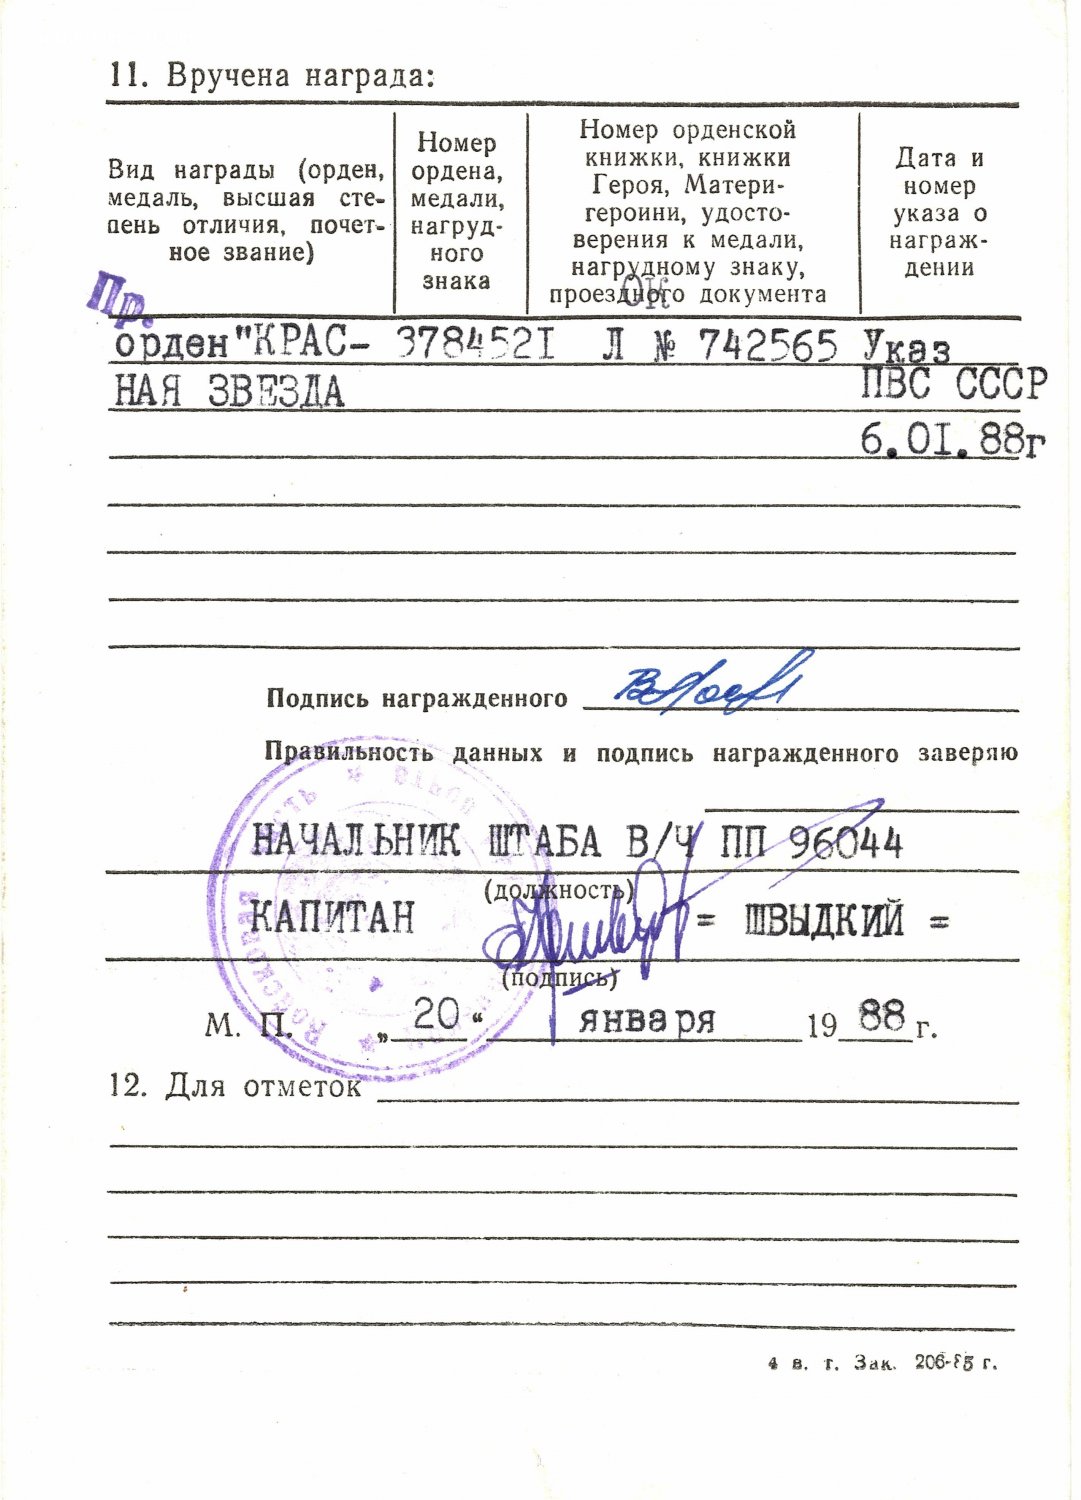 11. Вручена награда:
Вид награды (орден,
медаль, высшая сте-
пень отличия, почет-
ное звание)
Номер
ордена,
медали,
нагруд-
ного
знака
Номер орденской
книжки, книжки
Героя, Матери-
героини, удосто-
верения к медали,
нагрудному знаку,
проездного документа
Дата и
номер
указа о
награж-
дении
Пр.
ОК
орден"КРАС- 378452I Л № 742565 Указ
НАЯ ЗВЕЗДА ПВС СССР
6.0I.88г
Подпись награжденного
Правильность данных и подпись награжденного заверяю
НАЧАЛЬНИК ШТАБА В/Ч ПП 96044
(должность)
КАПИТАН = ШВЫДКИЙ =
(подпись)
М. П. „ 20 “ января 19 88 г.
Войсковая часть
12. Для отметок
4 в. т. Зак. 206-85 г.